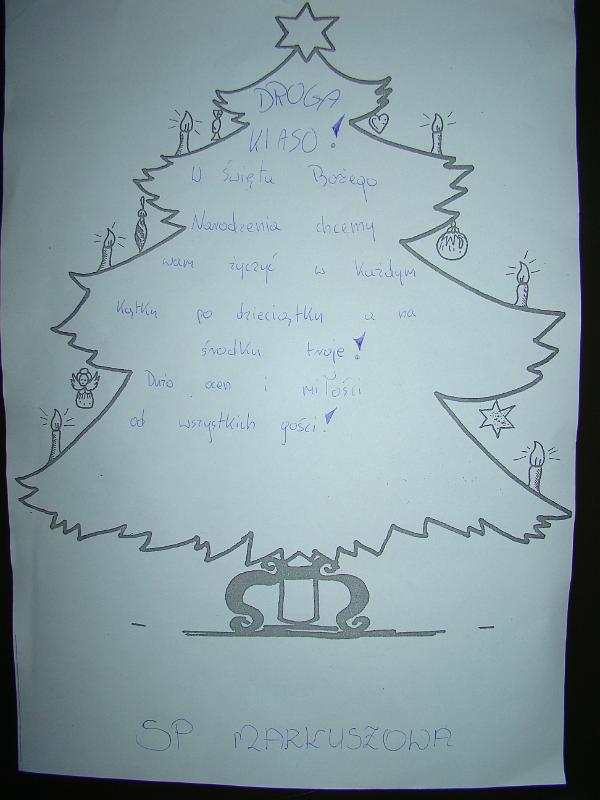 DROGA
KLASO!
W święta Bożego
Narodzenia chcemy
wam życzyć w każdym
kątku po dzieciątku a na
środku troje!
Dużo ocen i miłości
od wszystkich gości!
SP MARKUSZOWA